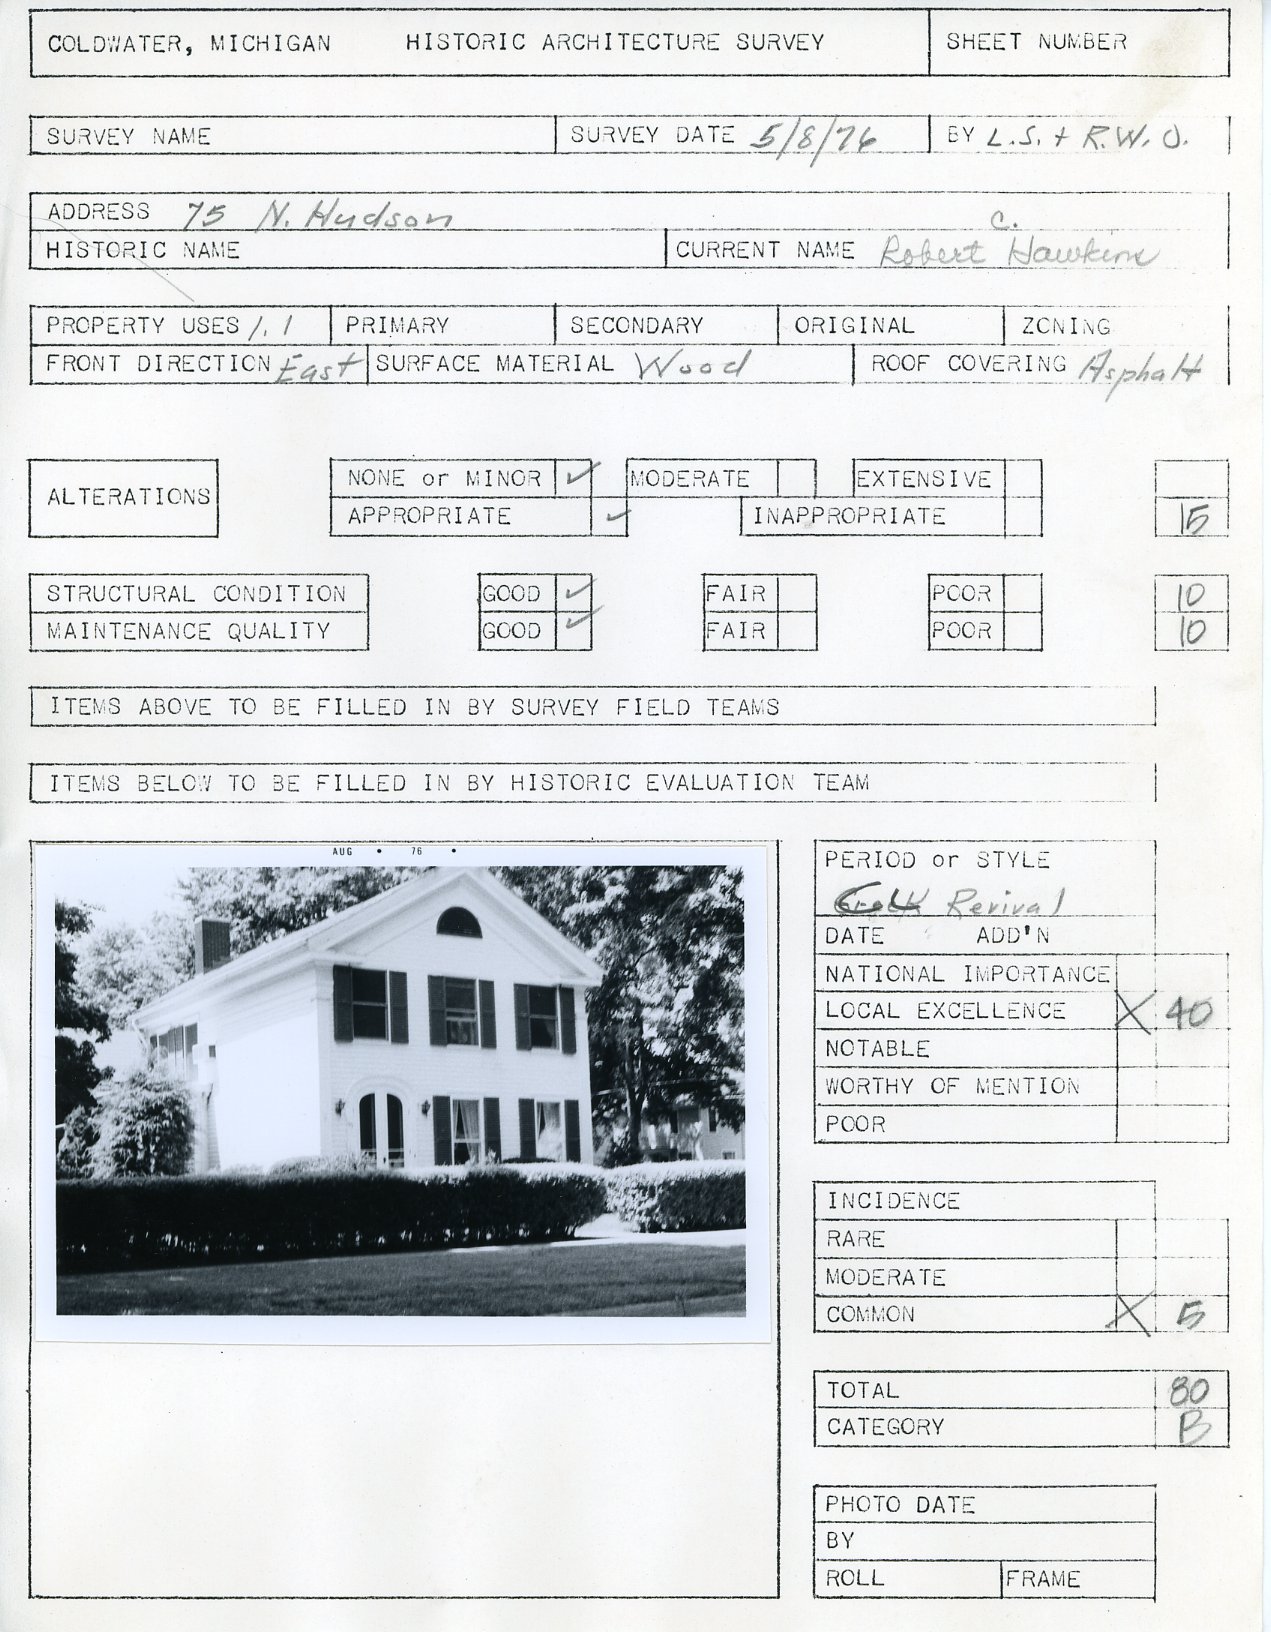 COLDWATER, MICHIGAN HISTORIC ARCHITECTURE SURVEY SHEET NUMBER
SURVEY NAME SURVEY DATE 5/8/76 BY L.S. + R.W.O.
ADDRESS 75 N. Hudson
HISTORIC NAME CURRENT NAME Robert C. Hawkins
PROPERTY USES 1.1 PRIMARY SECONDARY ORIGINAL ZONING
FRONT DIRECTION East SURFACE MATERIAL Wood ROOF COVERING Asphalt
ALTERATIONS NONE or MINOR ✓ MODERATE EXTENSIVE
APPROPRIATE ✓ INAPPROPRIATE 15
STRUCTURAL CONDITION GOOD ✓ FAIR POOR 10
MAINTENANCE QUALITY GOOD ✓ FAIR POOR 10
ITEMS ABOVE TO BE FILLED IN BY SURVEY FIELD TEAMS
ITEMS BELOW TO BE FILLED IN BY HISTORIC EVALUATION TEAM
AUG • 76 •
PERIOD or STYLE
Greek Revival
DATE ADD'N
NATIONAL IMPORTANCE
LOCAL EXCELLENCE X 40
NOTABLE
WORTHY OF MENTION
POOR
INCIDENCE
RARE
MODERATE
COMMON X 5
TOTAL 80
CATEGORY B
PHOTO DATE
BY
ROLL FRAME